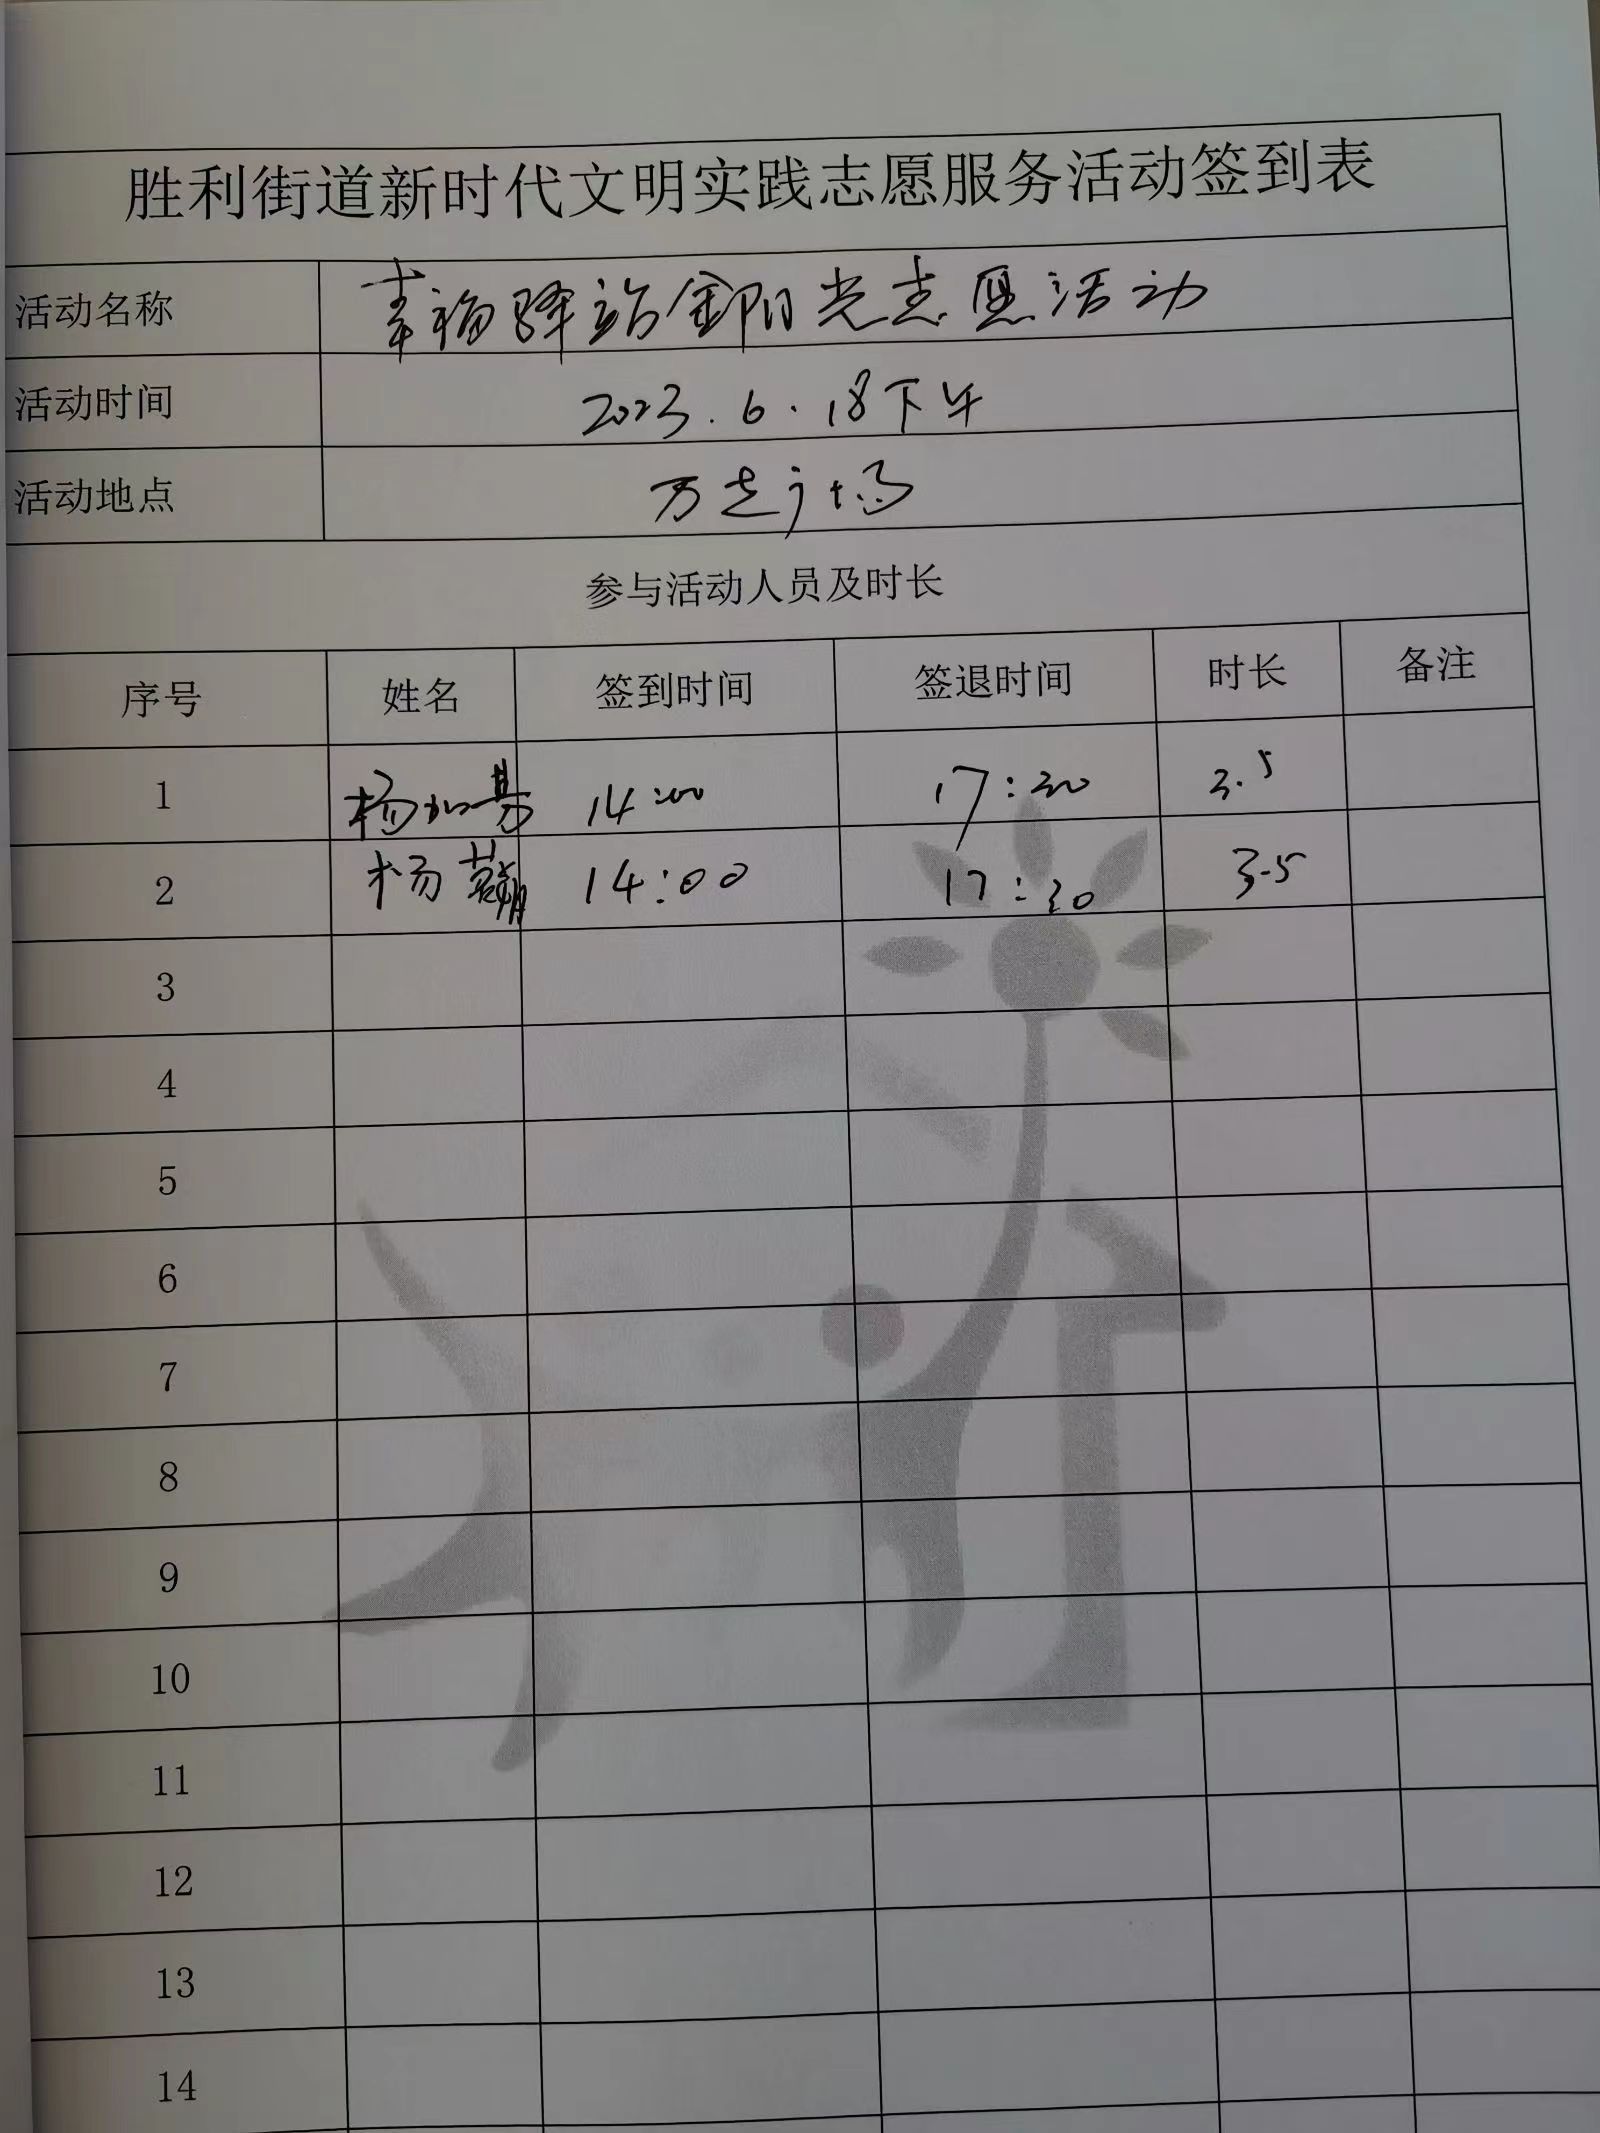 胜利街道新时代文明实践志愿服务活动签到表
活动名称 幸福驿站鑫阳光志愿活动
活动时间 2023.6.18下午
活动地点 万达广场
参与活动人员及时长
序号 姓名 签到时间 签退时间 时长 备注
1 杨 14:00 17:30 3.5
2 杨 14:00 17:30 3.5
3
4
5
6
7
8
9
10
11
12
13
14